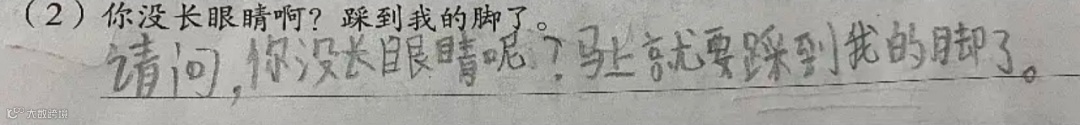 （2）你没长眼睛啊？踩到我的脚了。
请问，你没长眼睛呢？马上就要踩到我的脚了。
大数跨境